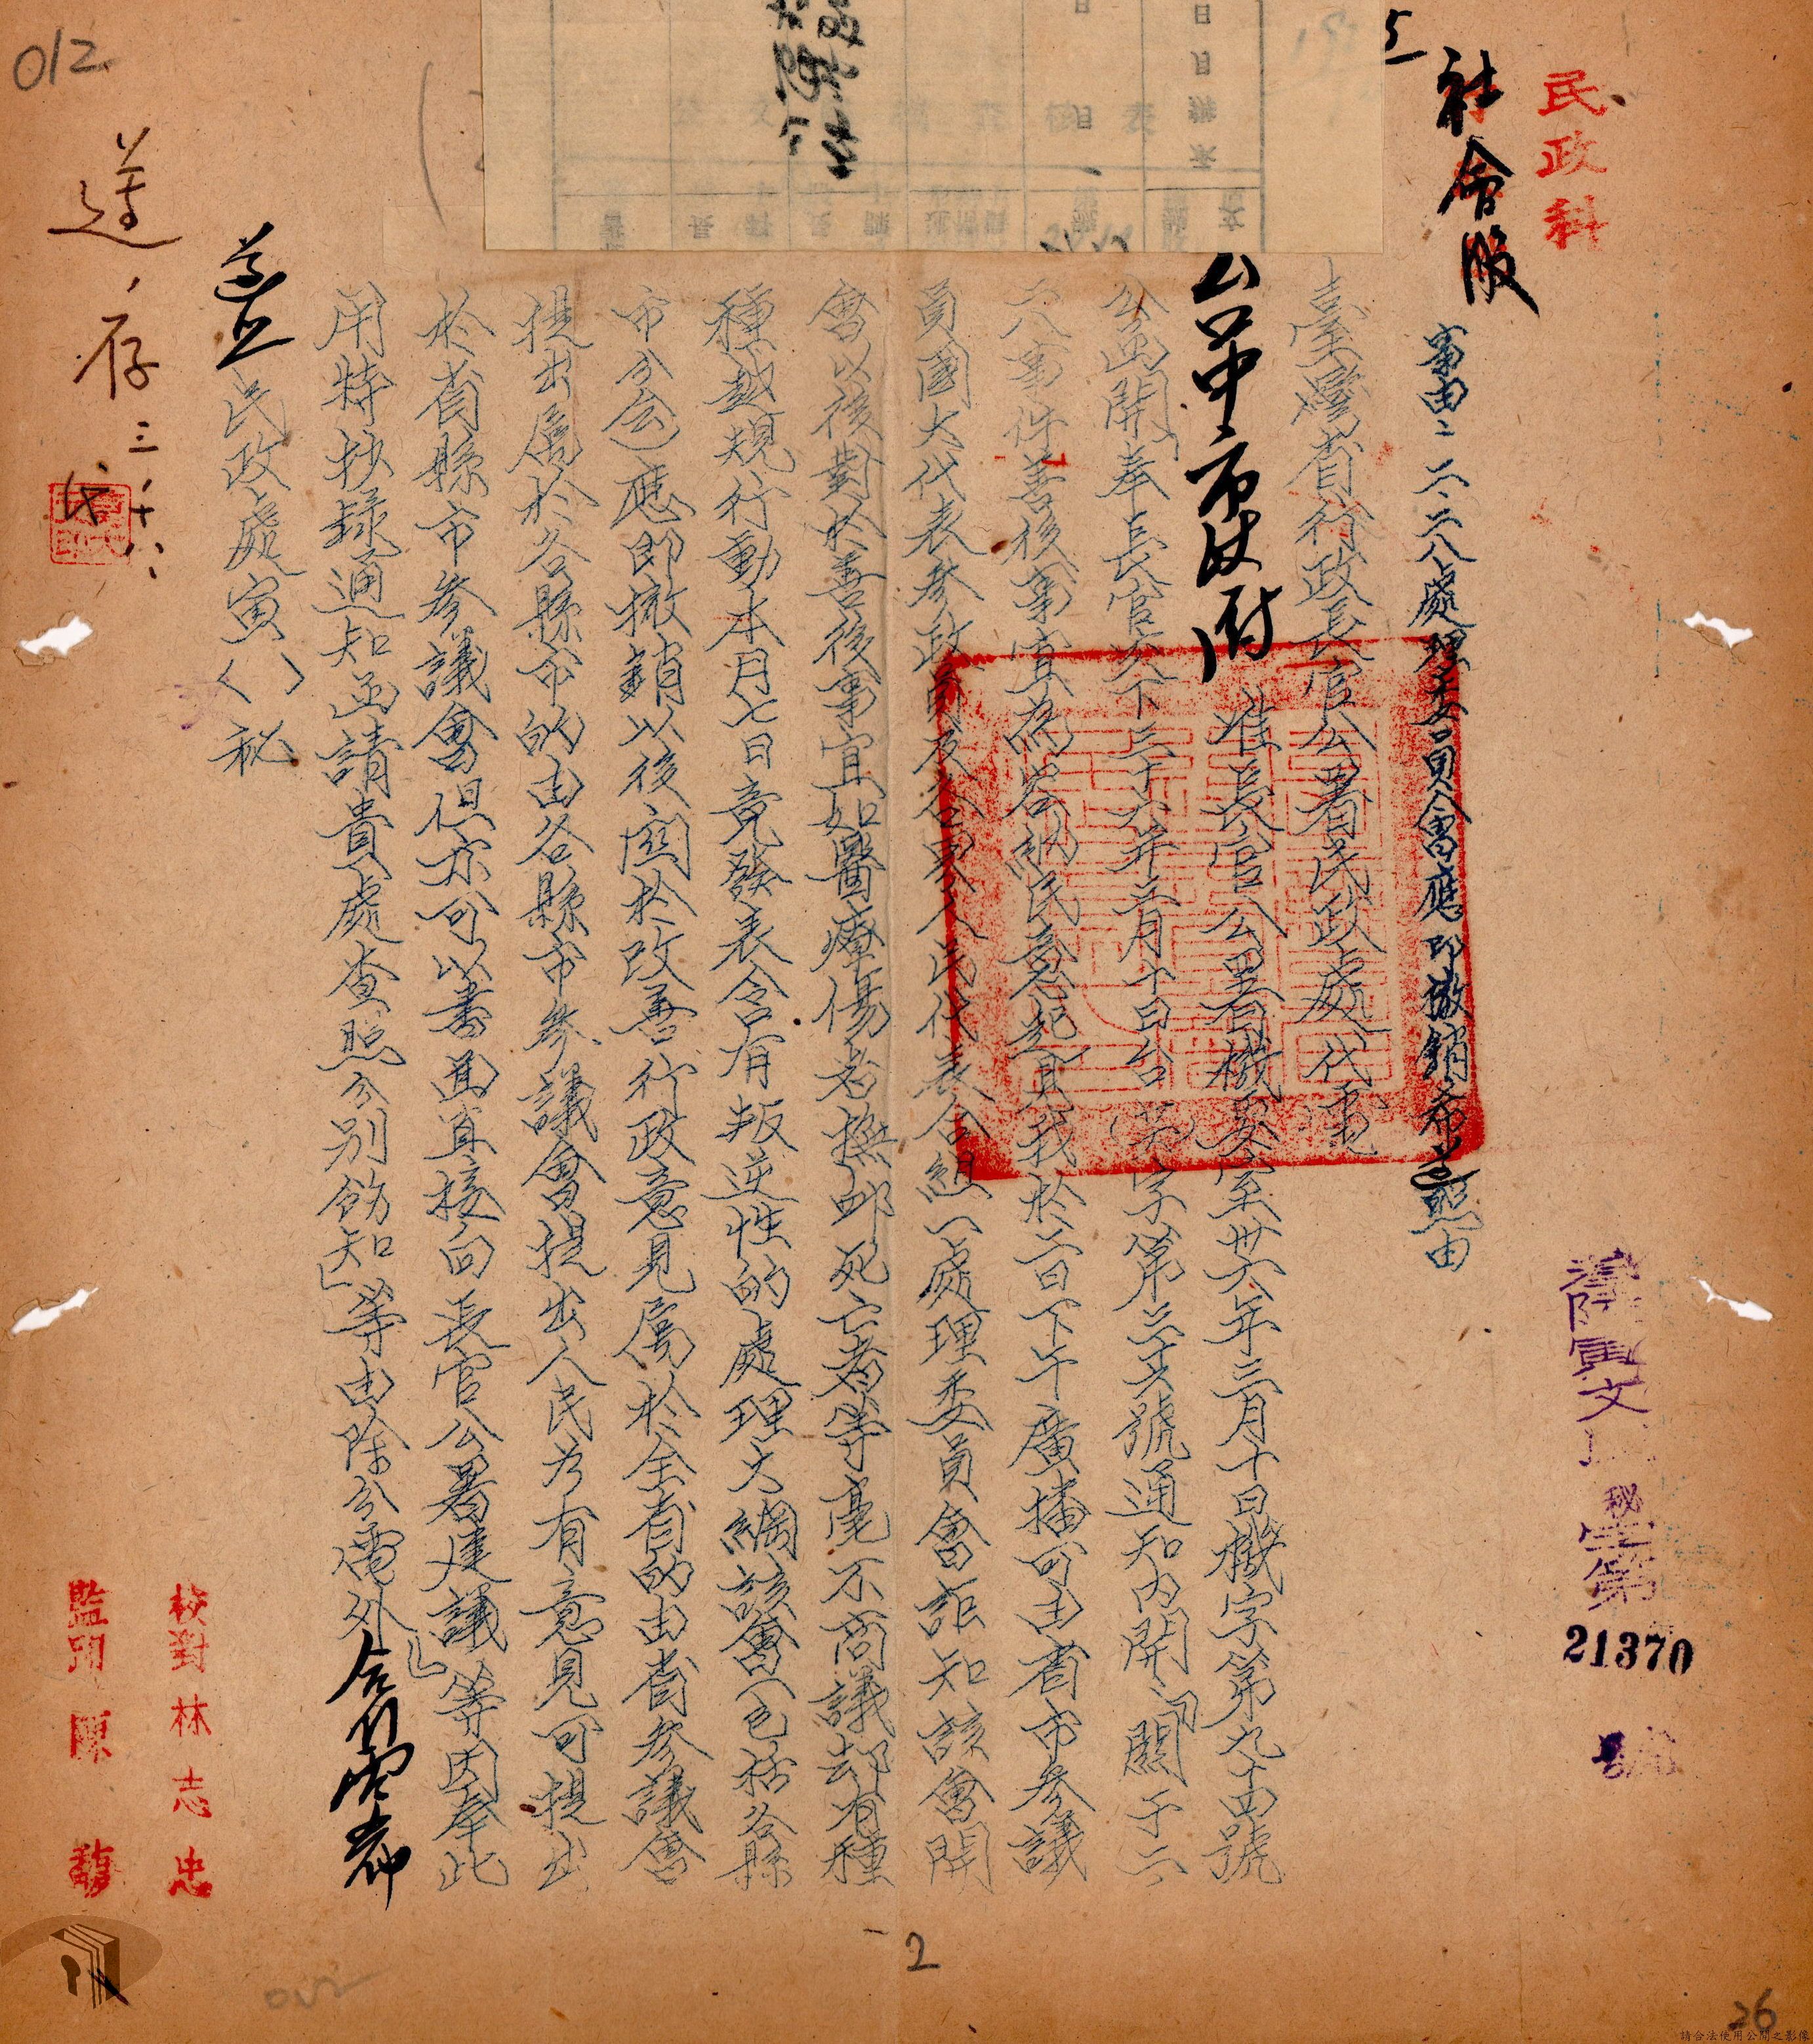 民政科
社會股
事由：二．二八處理委員會應即撤銷希照由
臺灣省行政長官公署民政處代電
台中市政府
准長官公署機要室卅六年三月十日機字第九十四號
公函開「奉長官交下三十六年三月十日台（　）字第　號通知內開「關于二
二八事件善後事宜為容納民意起見我於二日下午廣播可由省市參議
員國大代表參政員及各界人民代表合組一處理委員會詎知該會開
會以後對於善後事宜如醫療傷者撫卹死亡者等毫不商議却有種
種越規行動本月七日竟發表含有叛逆性的處理大綱該會（包括各縣
市分會）應即撤銷以後關於改善行政意見屬於全省的由省參議會
提出屬於各縣市的由各縣市參議會提出人民如有意見可提出
於省縣市參議會但亦可以書面直接向長官公署建議」等因奉此
用特抄錄通知函請貴處查照分別飭知」等由除分電外合行電希
遵照民政處寅（ ）秘
送存
三、十八、
秘
第
21370
號
校對林志忠
監印陳
012
2
26
請合法使用公開之影像